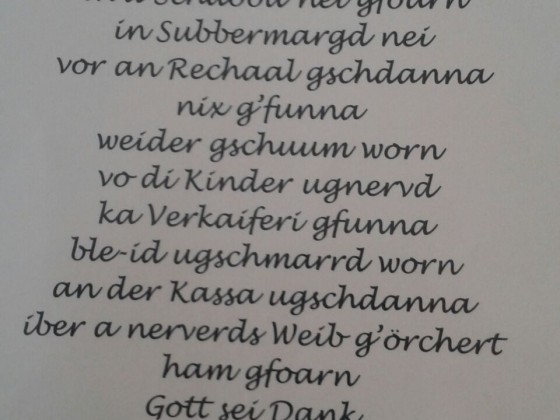 nei gfoarn
in Subbermargd nei
vor an Rechaal gschdanna
nix g'funna
weider gschuum worn
vo di Kinder ugnervd
ka Verkaiferi gfunna
ble-id ugschmarrd worn
an der Kassa ugschdanna
iber a nerverds Weib g'örchert
ham gfoarn
Gott sei Dank